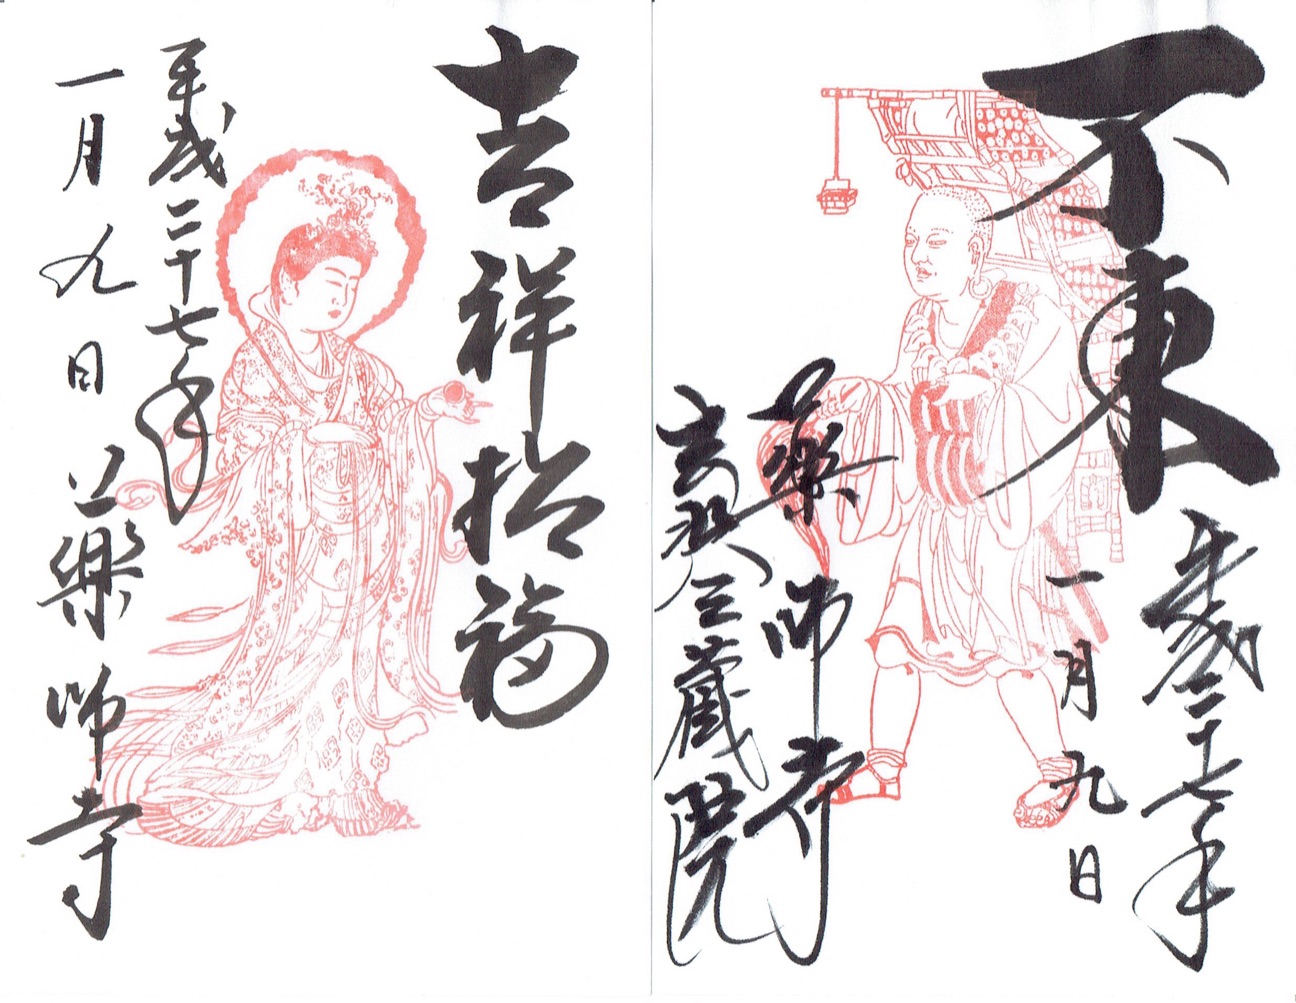 不東
平成二十七年
一月九日
藥師寺
玄奘三蔵院
吉祥招福
平成二十七年
一月九日
藥師寺